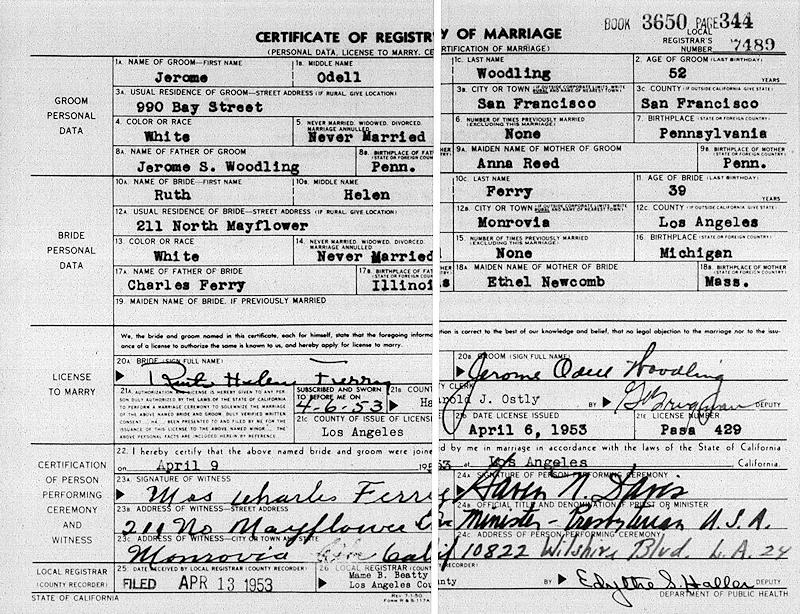 BOOK 3650 PAGE 344
CERTIFICATE OF REGISTRY OF MARRIAGE
LOCAL REGISTRAR'S NUMBER 7489
(PERSONAL DATA, LICENSE TO MARRY, CE RTIFICATION OF MARRIAGE)
GROOM PERSONAL DATA
1A. NAME OF GROOM—FIRST NAME 1B. MIDDLE NAME 1C. LAST NAME 2. AGE OF GROOM (LAST BIRTHDAY)
Jerome Odell Woodling 52 YEARS
3A. USUAL RESIDENCE OF GROOM—STREET ADDRESS (IF RURAL, GIVE LOCATION) 3B. CITY OR TOWN (IF OUTSIDE CORPORATE LIMITS, WRITE RURAL AND NAME OF NEAREST TOWN) 3C. COUNTY (IF OUTSIDE CALIFORNIA GIVE STATE)
990 Bay Street San Francisco San Francisco
4. COLOR OR RACE 5. NEVER MARRIED, WIDOWED, DIVORCED, MARRIAGE ANNULLED 6. NUMBER OF TIMES PREVIOUSLY MARRIED (EXCLUDING THIS MARRIAGE) 7. BIRTHPLACE (STATE OR FOREIGN COUNTRY)
White Never Married None Pennsylvania
8A. NAME OF FATHER OF GROOM 8B. BIRTHPLACE OF FAT (STATE OR FOREIGN COUN 9A. MAIDEN NAME OF MOTHER OF GROOM 9B. BIRTHPLACE OF MOTHER (STATE OR FOREIGN COUNTRY)
Jerome S. Woodling Penn. Anna Reed Penn.
BRIDE PERSONAL DATA
10A. NAME OF BRIDE—FIRST NAME 10B. MIDDLE NAME 10C. LAST NAME 11. AGE OF BRIDE (LAST BIRTHDAY)
Ruth Helen Ferry 39 YEARS
12A. USUAL RESIDENCE OF BRIDE—STREET ADDRESS (IF RURAL, GIVE LOCATION) 12B. CITY OR TOWN (IF OUTSIDE CORPORATE LIMITS, WRITE RURAL AND NAME OF NEAREST TOWN) 12C. COUNTY (IF OUTSIDE CALIFORNIA GIVE STATE)
211 North Mayflower Monrovia Los Angeles
13. COLOR OR RACE 14. NEVER MARRIED, WIDOWED, DIVORCED, MARRIAGE ANNULLED 15. NUMBER OF TIMES PREVIOUSLY MARRIED (EXCLUDING THIS MARRIAGE) 16. BIRTHPLACE (STATE OR FOREIGN COUNTRY)
White Never Married None Michigan
17A. NAME OF FATHER OF BRIDE 17B. BIRTHPLACE OF FAT (STATE OR FOREIGN COUN 18A. MAIDEN NAME OF MOTHER OF BRIDE 18B. BIRTHPLACE OF MOTHER (STATE OR FOREIGN COUNTRY)
Charles Ferry Illinois Ethel Newcomb Mass.
19. MAIDEN NAME OF BRIDE, IF PREVIOUSLY MARRIED
LICENSE TO MARRY
We, the bride and groom named in this certificate, each for himself, state that the foregoing information is correct to the best of our knowledge and belief, that no legal objection to the marriage nor to the issu-
ance of a license to authorize the same is known to us, and hereby apply for license to marry.
20A. BRIDE (SIGN FULL NAME) 20B. GROOM (SIGN FULL NAME)
Ruth Helen Ferry Jerome Odell Woodling
21A. AUTHORIZATION AND LICENSE IS HEREBY GIVEN TO ANY PER-
SON DULY AUTHORIZED BY THE LAWS OF THE STATE OF CALIFORNIA
TO PERFORM A MARRIAGE CEREMONY TO SOLEMNIZE THE MARRIAGE
OF THE ABOVE NAMED BRIDE AND GROOM.
SUBSCRIBED AND SWORN TO BEFORE ME ON 4-6-53
21A COUNTY CLERK Harold J. Ostly BY DEPUTY
21C. COUNTY OF ISSUE OF LICENSE 21D. DATE LICENSE ISSUED 21E. LICENSE NUMBER
Los Angeles April 6, 1953 Pasa 429
CERTIFICATION OF PERSON PERFORMING CEREMONY AND WITNESS
22. I hereby certify that the above named bride and groom were joined by me in marriage in accordance with the laws of the State of California
on April 9 1953 at Los Angeles, California.
23A. SIGNATURE OF WITNESS 24A. SIGNATURE OF PERSON PERFORMING CEREMONY
Mrs Charles Ferry Haven N. Davis
23B. ADDRESS OF WITNESS—STREET ADDRESS 24B. OFFICIAL TITLE AND DENOMINATION IF PRIEST OR MINISTER
211 No Mayflower Minister - Presbyterian U.S.A.
23C. ADDRESS OF WITNESS—CITY OR TOWN AND STATE 24C. ADDRESS OF PERSON PERFORMING CEREMONY
Monrovia Calif 10822 Wilshire Blvd. L.A. 24
LOCAL REGISTRAR (COUNTY RECORDER)
25. DATE RECEIVED BY LOCAL REGISTRAR (COUNTY RECORDER) 26. LOCAL REGISTRAR (COUNTY
FILED APR 13 1953 Mame B. Beatty
Los Angeles County BY Edythe S. Haller DEPUTY
STATE OF CALIFORNIA REV. 7-1-50 FORM R & S-117A DEPARTMENT OF PUBLIC HEALTH